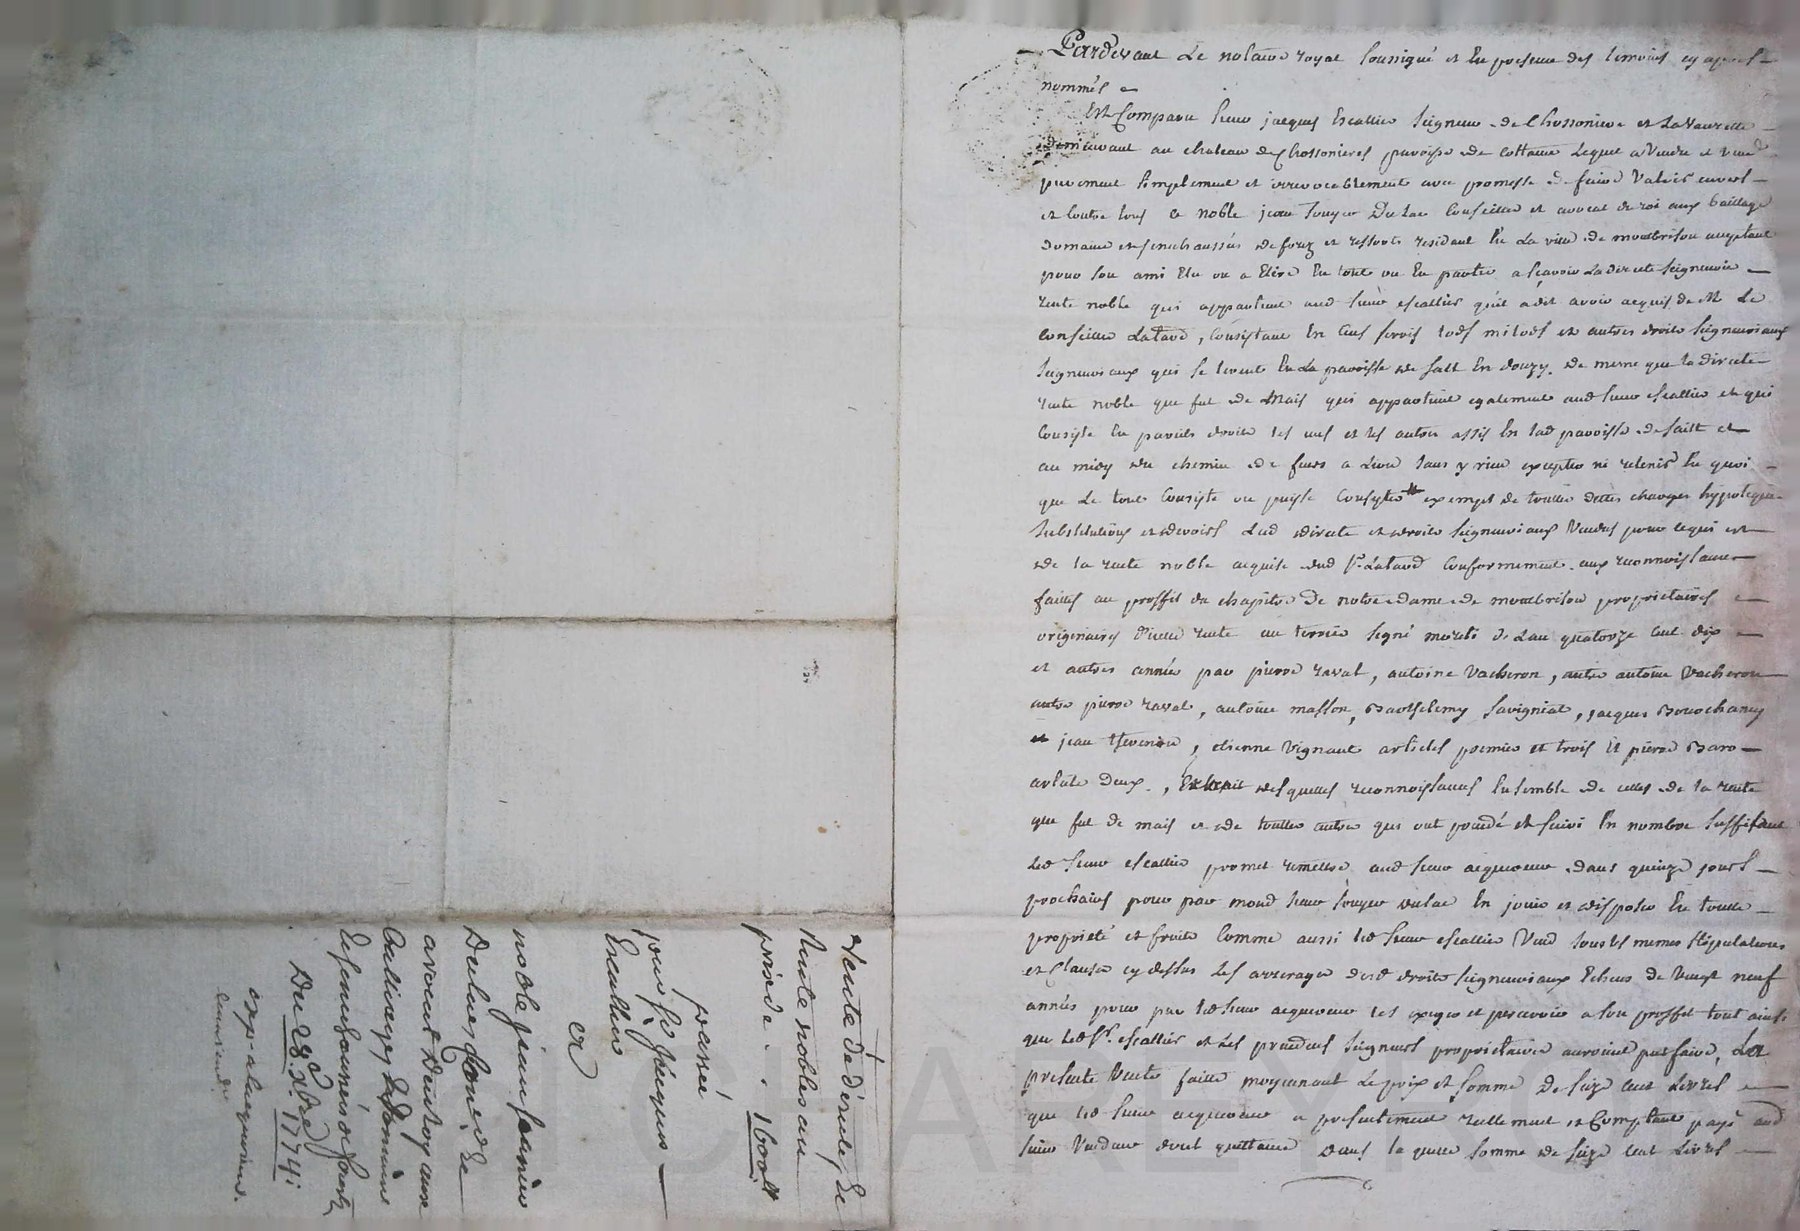 Pardevant Le notaire royal soussigné et En presence des temoins cy apres
nommés
Est Comparu sieur jacques Escallier seigneur de Chossoniere et La Vaurette
demeurant au chateau de Chossonieres paroisse de cottance Lequel a Vendu et vend
purement simplement et irrevocablement avec promesse de faire Valoir envers
et Contre tous a noble jean souyer Dulac Conseiller et avocat du roi aux bailliage
domaine et senechaussée de forez et ressorts residant En La ville de montbrison acceptant
pour son ami Elu ou a Elire En tout ou En partie a sçavoir La directe seigneurie
rente noble qui appartient aud sieur escallier qu'il a dit avoir acquis de Mr Le
Conseiller Latard, Consistant En Cens servis lods milods et autres droits seigneuriaux
seigneuriaux qui se levent En La paroisse de salt En donzy. de meme que la directe
rente noble que fut de Mais qui appartient egalement aud sieur escallier et qui
Consiste En pareils droits les uns et les autres assis En lad paroisse de sailt et
au midy du chemin de feurs a Lion sans y rien excepter ni retenir En quoi
que Le tout Consiste ou puisse Consister exempt de toutes dettes charges hypoteques
substitutions et devoirs Lad directe et droits seigneuriaux Vendus pour ce qui est
de la rente noble acquise dud Sr. Latard Conformement aux reconnoissances
faittes au proffit du chapitre de notre dame de montbrison proprietaires
originaires d'icelle rente au terrier signé de L'an quatorze cent dix
et autres années par pierre raval, antoine Vacheron, autre antoine Vacheron
autre pierre raval, antoine masson, Barthelemy savigniat, jacques
et jean thevenin, etienne Vignant articles premier et trois Et pierre Baro
article Deux., Extrait desquelles reconnoissances Ensemble de celles de la rente
que fut de mais et de touttes autres qui ont et suivi En nombre suffisant
led sieur escallier promet remettre aud sieur acquereur dans quinze jours
prochains pour par mond sieur souyer dulac En jouir et disposer En toutte
proprieté et fruits Comme aussi led sieur escallier Vend sous les memes stipulations
et Clauses cy dessus Les arrerages desd droits seigneuriaux Echeus de Vingt neuf
années pour par led sieur acquereur les exiger et percevoir a son proffit tout ainsi
que led Sr. escallier et Les precedens seigneurs proprietaires auroient pu faire, La
presente Vente faitte moyennant Le prix et somme De seize cent Livres
que led sieur acquereur a presentement reellement et Comptant payé aud
sieur Vendeur dont quittance Dans la quelle somme de seize cent Livres
Vente de directe, de
Rente noble, au
prix de .. 1600ll
passée
par Sr. Jacques
Escallier
a
noble jean souyer
Dulac Coner. de
avocat du roy aux
Bailliages Domaine
et senechaussée de forez
Du 28e. Xbre. 1774.
exp. a l'acquereur.